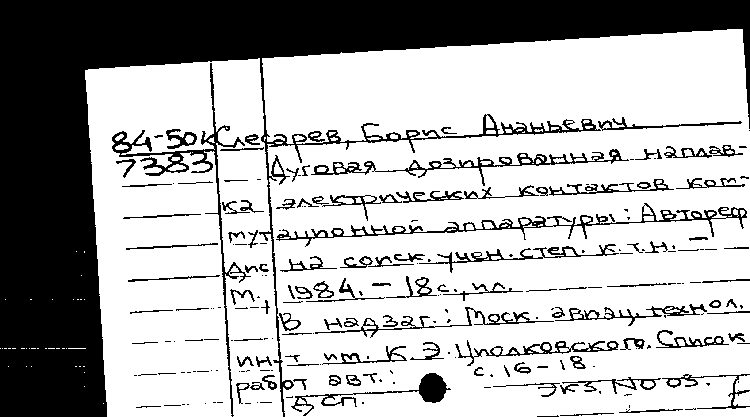 84-50к Слесарев, Борис Ананьевич.
7383 Дуговая дозированная наплав-
ка электрических контактов ком-
мутационной аппаратуры: Автореф
дис на соиск. учен. степ. к.т.н. -
М., 1984. - 18 с., ил.
В надзаг.: Моск. авиац. технол.
ин-т им. К. Э. Циолковского. Список
работ авт.: с. 16-18.
ДСП. экз. No 03.